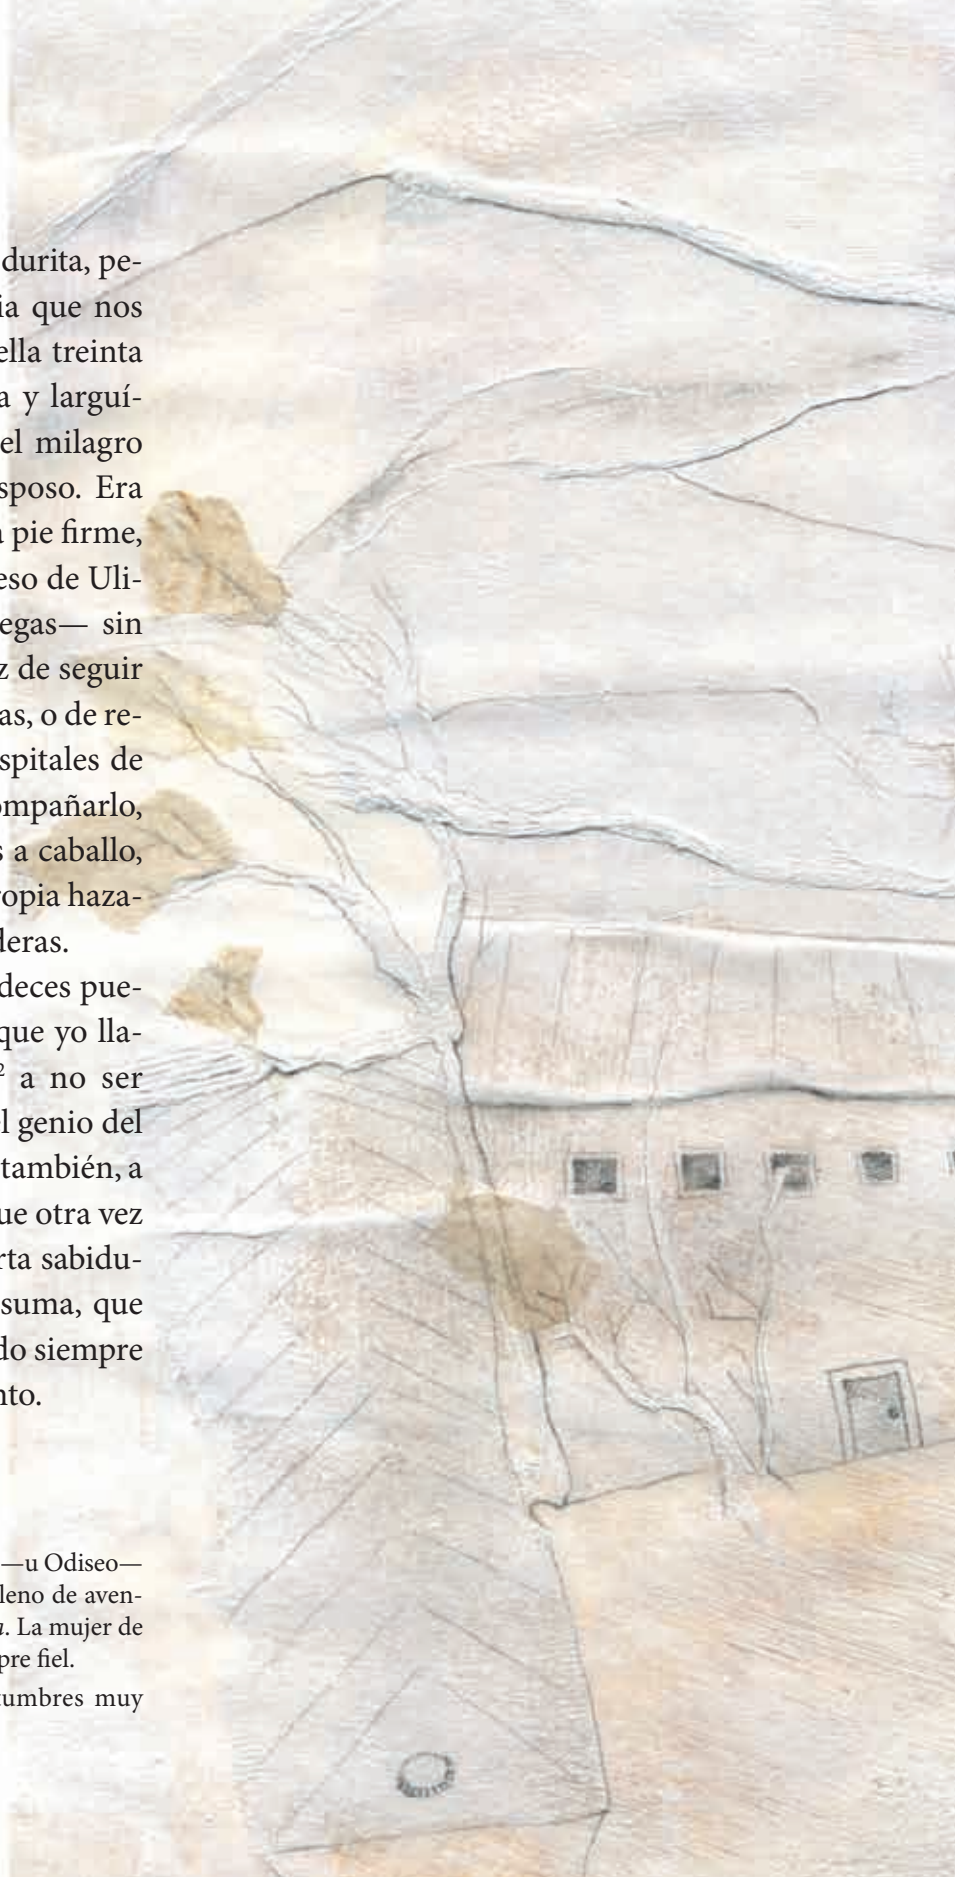 durita, pe-
ia que nos
ella treinta
a y larguí-
el milagro
sposo. Era
a pie firme,
eso de Uli-
egas— sin
z de seguir
as, o de re-
spitales de
ompañarlo,
s a caballo,
ropia haza-
deras.
deces pue-
que yo lla-
² a no ser
el genio del
también, a
ue otra vez
rta sabidu-
suma, que
do siempre
nto.
—u Odiseo—
leno de aven-
a. La mujer de
pre fiel.
tumbres muy